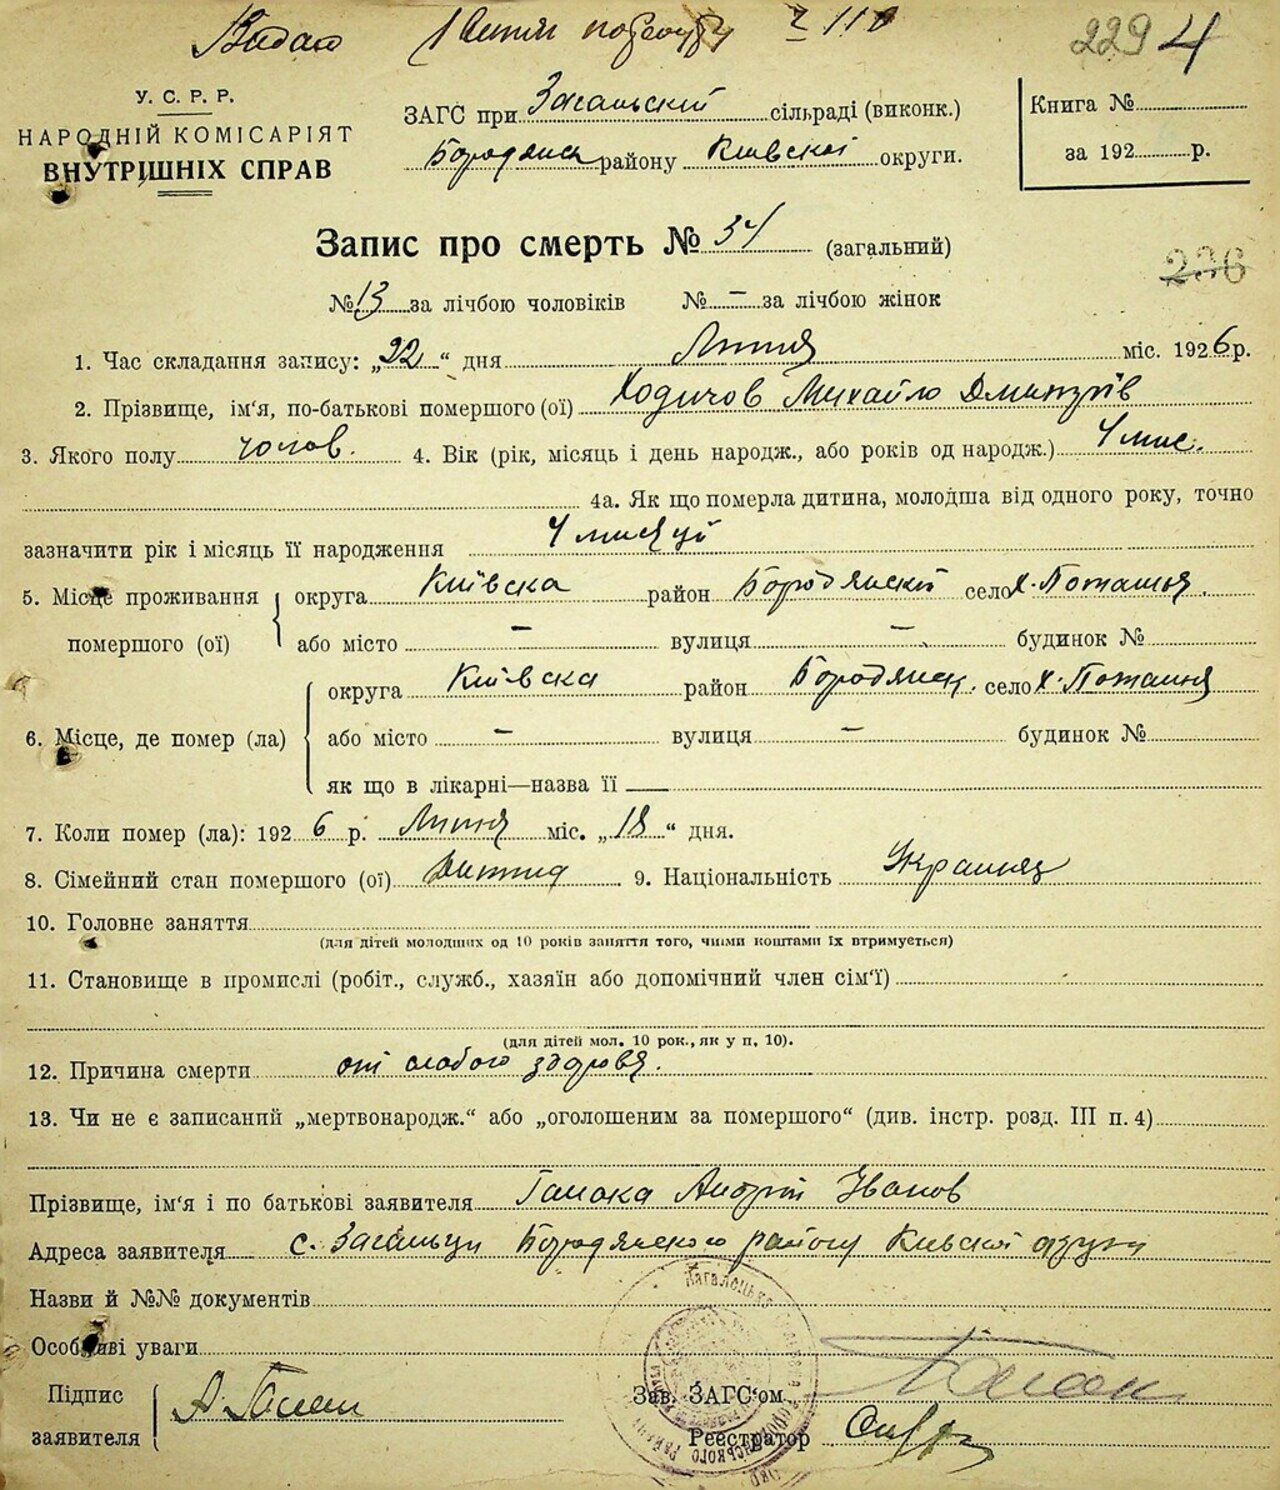 Видано 110
229 4
У. С. Р. Р.
НАРОДНІЙ КОМІСАРІЯТ
ВНУТРІШНІХ СПРАВ
ЗАГС при Загальскій сільраді (виконк.)
Бородянск району Київскої округи.
Книга №
за 192 р.
Запис про смерть № 34 (загальний)
236
№ 13 за лічбою чоловіків № – за лічбою жінок
1. Час складання запису: „22“ дня Липня міс. 1926 р.
2. Прізвище, ім'я, по-батькові помершого (ої) Ходичов Михайло Дмитрів
3. Якого полу чолов. 4. Вік (рік, місяць і день народж., або років од народж.) 4 мис.
4а. Як що померла дитина, молодша від одного року, точно
зазначити рік і місяць її народження 4 мисяці
5. Місце проживання помершого (ої) округа Київска район Бородянскій село х. Поташня
або місто – вулиця – будинок №
6. Місце, де помер (ла) округа Київска район Бородянск. село х. Поташня
або місто – вулиця – будинок №
як що в лікарні—назва її —
7. Коли помер (ла): 1926 р. Липня міс. „18“ дня.
8. Сімейний стан помершого (ої) дитина 9. Національність Украинец
10. Головне заняття
(для дітей молодших од 10 років заняття того, чиїми коштами їх втримується)
11. Становище в промислі (робіт., служб., хазяїн або допомічний член сім'ї)
(для дітей мол. 10 рок., як у п. 10).
12. Причина смерти от слабого здоровя.
13. Чи не є записаний „мертвонародж.“ або „оголошеним за помершого“ (див. інстр. розд. III п. 4)
Прізвище, ім'я і по батькові заявителя Андрій Іванов
Адреса заявителя с. Загальци Бородянского району Київскої округи
Назви й №№ документів
Особливі уваги
Підпис заявителя А.
Зав. ЗАГС'ом
Реєстратор